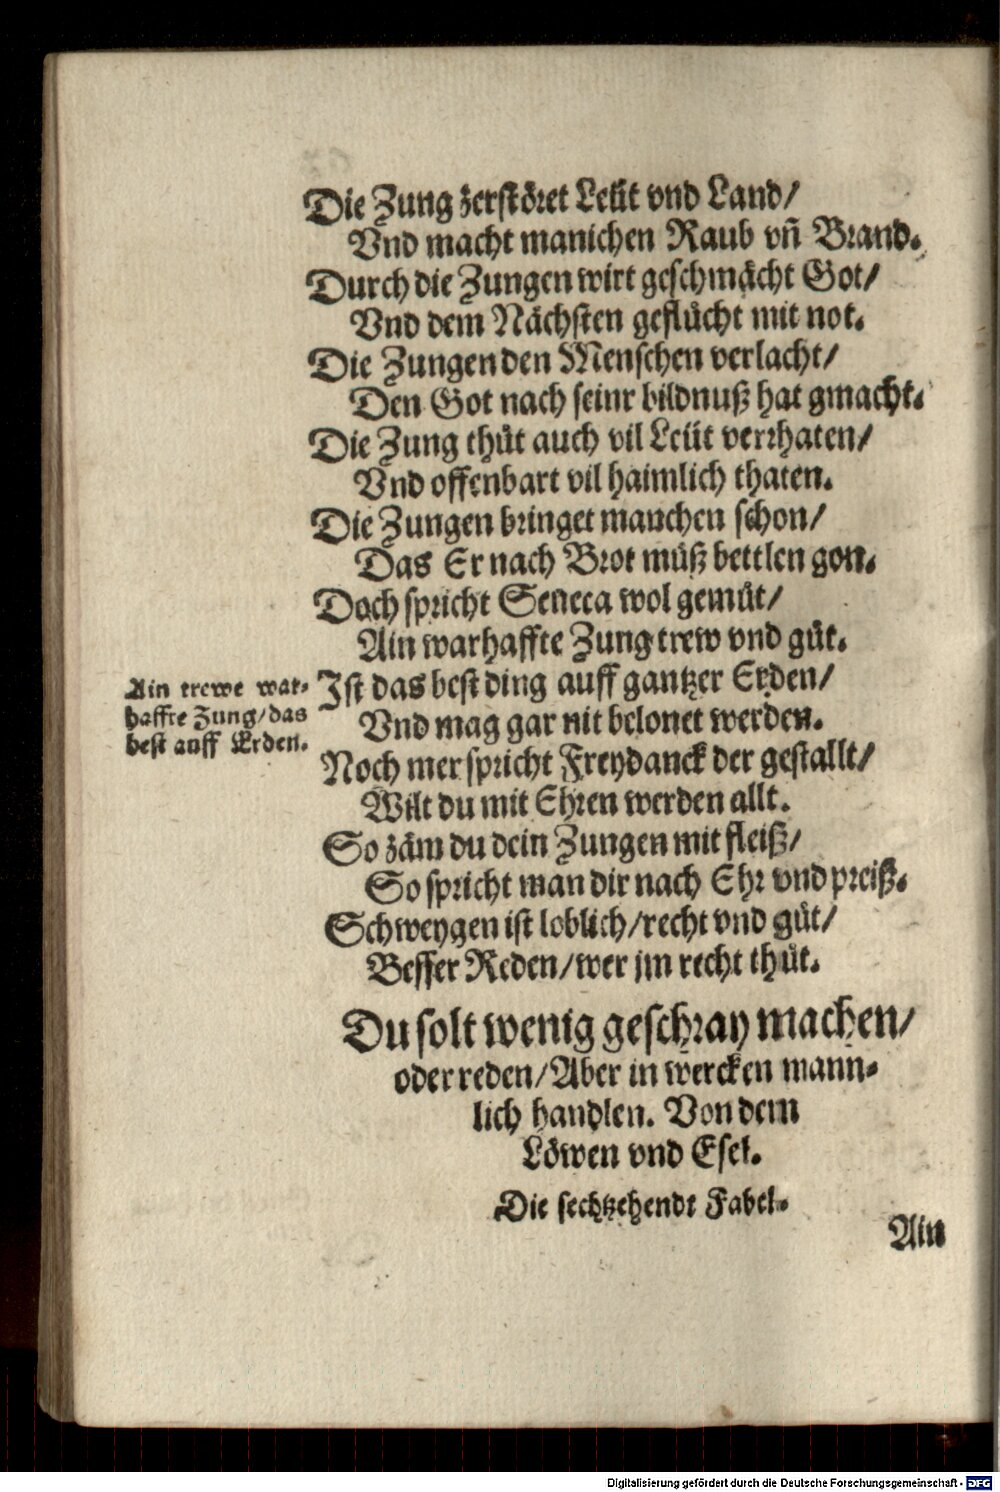 Die Zung zerstöret Leüt vnd Land/
Vnd macht manichen Raub vñ Brand.
Durch die Zungen wirt geschmächt Got/
Vnd dem Nächsten geflůcht mit not.
Die Zungen den Menschen verlacht/
Den Got nach seinr bildnuß hat gmacht.
Die Zung thůt auch vil Leüt verrhaten/
Vnd offenbart vil haimlich thaten.
Die Zungen bringet manchen schon/
Das Er nach Brot můß bettlen gon.
Doch spricht Seneca wol gemůt/
Ain warhaffte Zung trew vnd gůt.
Ist das best ding auff gantzer Erden/
Vnd mag gar nit belonet werden.
Ain trewe war-
haffte Zung/das
best auff Erden.
Noch mer spricht Freydanck der gestallt/
Wilt du mit Ehren werden allt.
So zäm du dein Zungen mit fleiß/
So spricht man dir nach Ehr vnd preiß.
Schweygen ist loblich/recht vnd gůt/
Besser Reden/wer jm recht thůt.
Du solt wenig geschray machen/
oder reden/Aber in wercken mann-
lich handlen. Von dem
Löwen vnd Esel.
Die sechtzehendt Fabel.
Ain
Digitalisierung gefördert durch die Deutsche Forschungsgemeinschaft - DFG